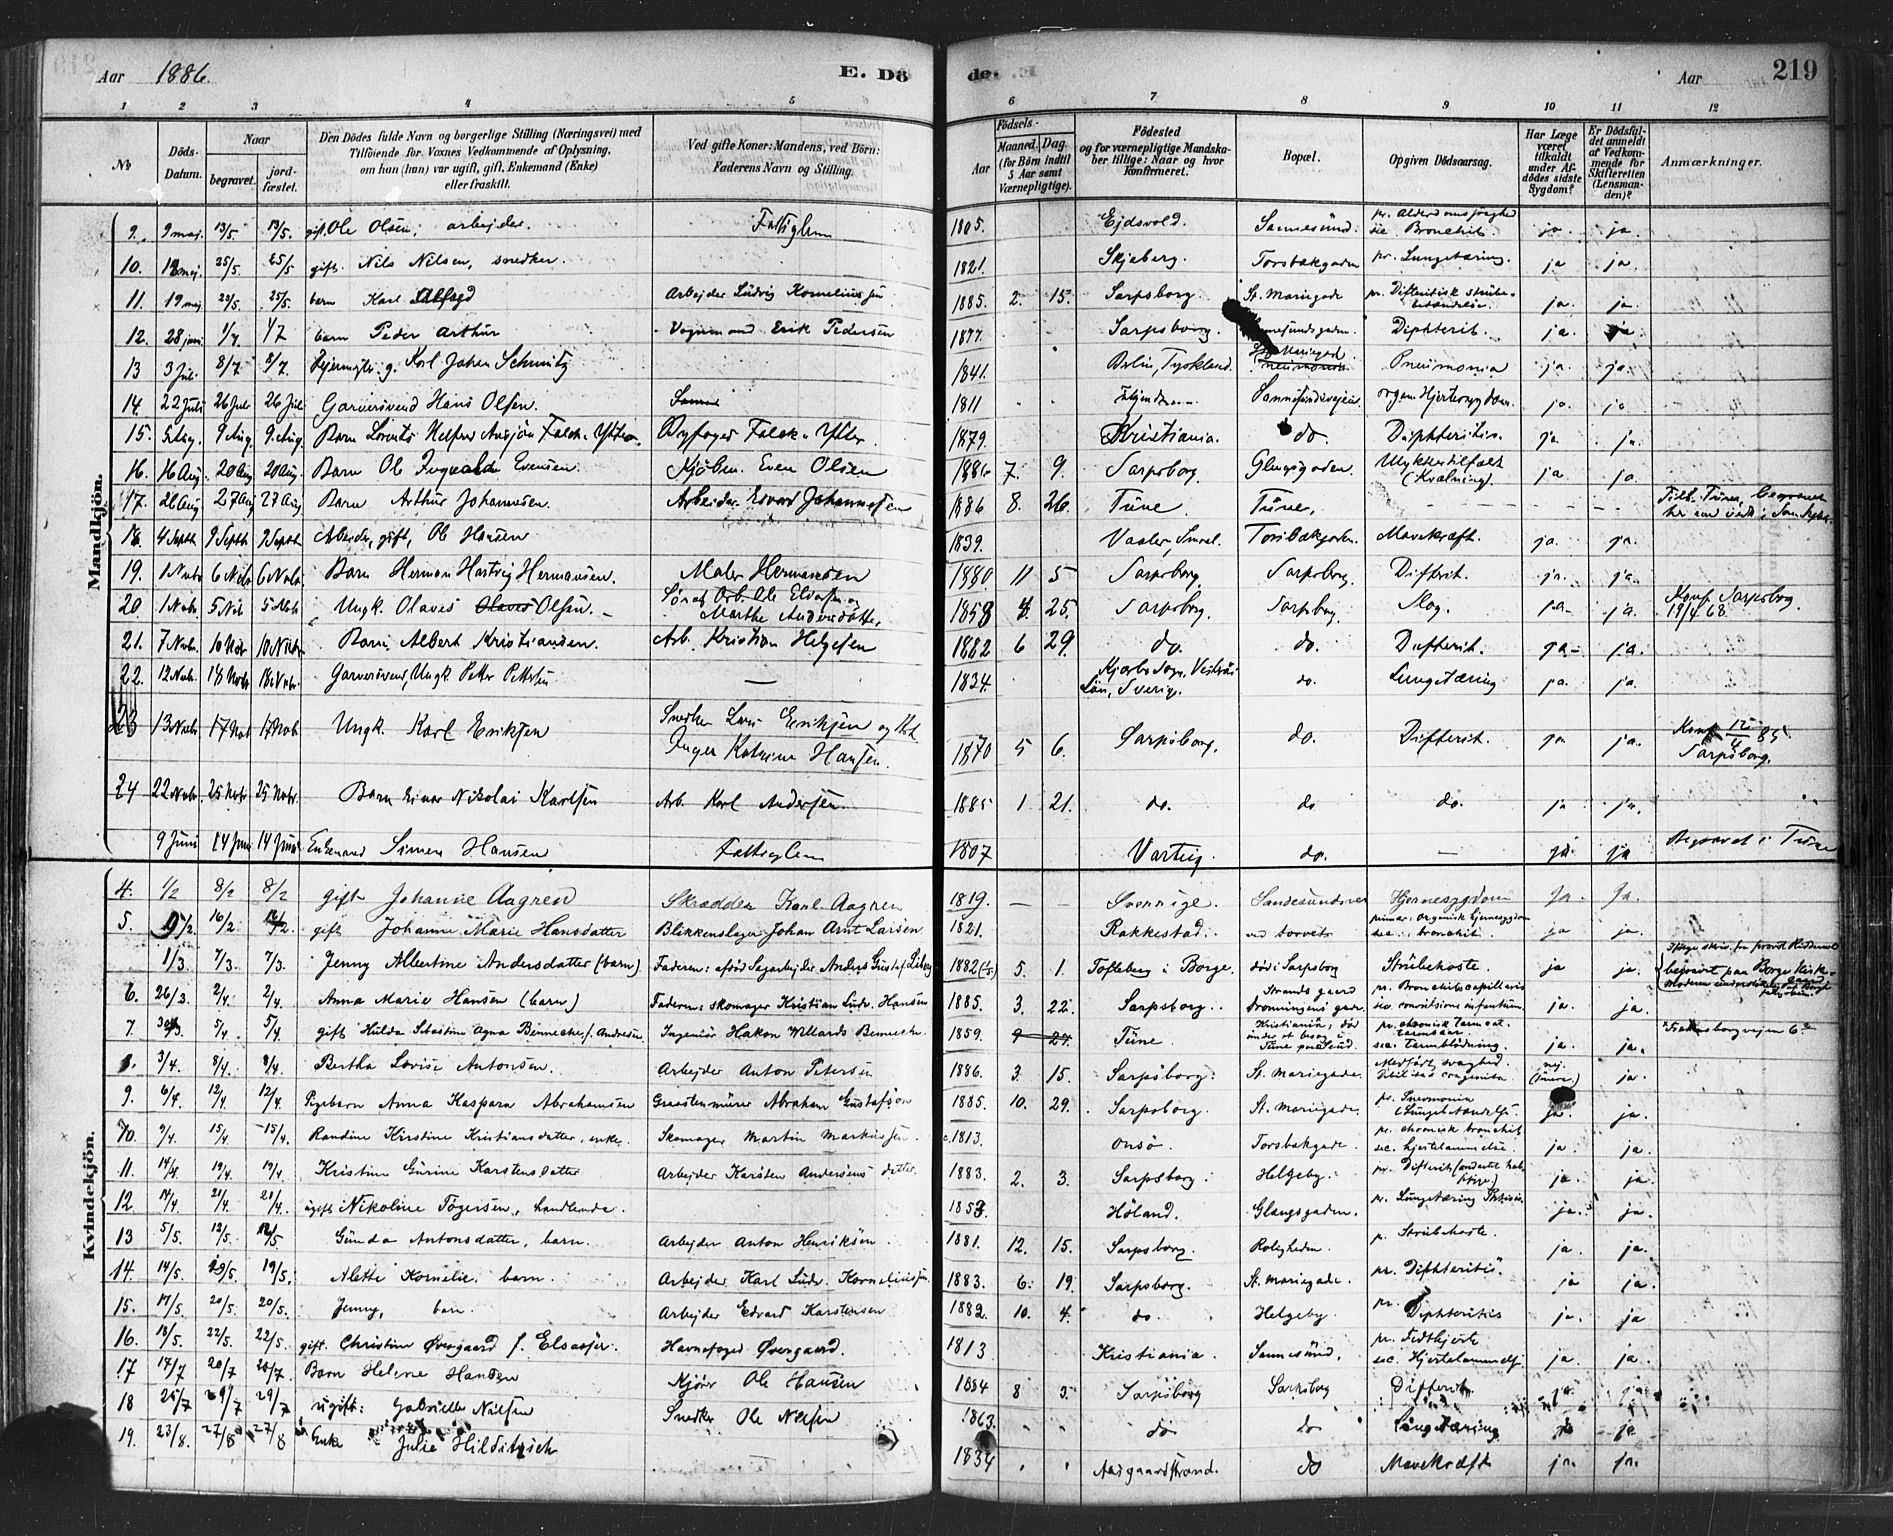 Aar 1886. E. Dö de. Aar 219
1 2 3 4 5 6 7 8 9 10 11 12
No
Döds-Datum.
Naar
begravet.
jordfæstet.
Den Dödes fulde Navn og borgerlige Stilling (Næringsvei) med
Tilföiende for Voxnes Vedkommende af Oplysning,
om han (hun) var ugift, gift, Enkemand (Enke)
eller fraskilt.
Ved gifte Koner: Mandens, ved Börn:
Faderens Navn og Stilling.
Födsels-
Aar
Maaned. Dag.
(for Börn indtil
5 Aar samt
Værnepligtige).
Födested
og for værnepligtige Mandska-
ber tillige: Naar og hvor
konfirmeret.
Bopæl.
Opgiven Dödsaarsag.
Har Læge
været
tilkaldt
under Af-
dödes sidste
Sygdom?
Er Dödsfal-
det anmeldt
af Vedkom-
mende for
Skifteretten
(Lensman-
den)?
Anmærkninger.
Mandkjön.
9. 9 maj. 13/5. 13/5. gift. Ole Olsen, arbejder. Fattiglem 1805. Ejdsvold. Sannesund. pr. Alderdomssvaghed sec. Bronchit. ja. ja.
10. 25/5. 25/5 gift. Nils Nilsen, snedker. 1821. Skjeberg. Torsbakgaden pr. Lungetæring. ja ja.
11. 19 maj 25/5. 25/5. barn Karl Arbejder Ludvig Korneliussen 1885. 2. 15. Sarpsborg. St. Mariegade pr. Difteritisk ja. ja.
12. 28 juni 1/7. 1/7 barn Peder Arthur Vognmand Erik Pedersen 1877. Sarpsborg. Diphterit. ja. ja.
13 3 Jul. 8/7. 8/7. g. Karl Johan Schmitz 1841. Berlin, Tyskland. St. Mariegad Pneumonia ja. ja.
14. 22 Juli 26 Jul 26 Jul Garversvend Hans Olsen. 1811 Sannesundsveien. organ. Hjertesygdom. ja. ja
15. 5 Aug. 9 Aug. 9. Aug. Barn Lorents Falck-Ytter. Byfoged Falck-Ytter. 1879. Kristiania. do Diphteritis. ja. ja.
16. 16 Aug. 20 Aug 20 Aug. Barn Ole Evensen. Kjøbm. Even Olsen 1886 7. 9. Sarpsborg Glengsgaden. Ulykkestilfælde (Kvælning). ja ja
17. 26 Aug 27 Aug 27 Aug Barn Arthur Johannesen. Arbeider Edvard Johannesen 1886 8. 26. Tune. Tune.
18. 4 Septb 9 Septb 9 Septb Arbeider, gift, Ole Hansen 1839. Vaaler, Smaal. Torsbækgaden. Mavekræft. ja. ja.
19. 1 Novb 6 Novb 6 Novb. Barn Herman Hartvig Hermansen. Maler Hermansen 1880 11 5 Sarpsborg. Sarpsborg. Difterit. ja. ja.
20. 1 Novb. 5 Nvb 5 Novb. Ungk. Olaves Olsen. Arb. Ole og Marthe Andersdatter. 1858 8. 25. Sarpsborg. Sarpsborg Slag. ja ja. Konf. Sarpsborg. 68.
21. 7 Novb. 10 Nov 10 Novb. Barn, Albert Kristiansen. Arb. Kristian Helgesen 1882 6 29. do. do. Difterit. ja ja.
22. 12 Novb. 18 Novb 18 Novb. Garversvend, Ungk Petter Pettersen — 1834. Sverig. do. Lungetæring ja. ja.
23 13 Novb 17 Nob 17 Nob. Ungk. Karl Eriksen Snedker Eriksen og Inger Katrine Hansen. 1870 5 6. Sarpsborg. do. Difterit. ja ja. Konf. 12/4 85. Sarpsborg.
24 22 Novb. 25 Novb 25 Novb. Barn Einar Nikolai Karlsen Arb. Karl Andersen. 1885 1 21. do. do do. ja ja.
9 Juni 14 Juni 14 Juni Enkemand Simen Hansen Fattiglem 1807 Varteig. do. — ja. ja Begravet i Tune
Kvindekjön.
4. 1/2 8/2 8/2 gift Johanne Aagren Skrædder Karl Aagren 1819. — — Sverrige. Hjernesygdom Ja. Ja.
5. 16/2 gift Johanne Marie Hansdatter Blikkenslager Johan Arnt Larsen. 1821. Rakkestad. ved torvet primær: Organisk hjernesygdom sec.: bronchit. ja ja.
1/3 7/3. 7/3. Jenny Albertine Andersdatter (barn) Faderen: afdød Sagarbejder Anders Gustaf 1882 5. 1. Tofteberg i Borge. død i Sarpsborg Strubehoste. ja ja. begravet paa Borge Kirke-
6. 26/3 2/4. 2/4. Anna Marie Hansen (barn) Faderen: skomager Kristian Ludv. Hansen 1885. 3. 22. Sarpsborg. Strands gaard dronningens gade. pr. Bronchitis capillaris sec convulsiones infantium. ja. ja.
7. 5/4. 5/4. gift Hulda Sebastine Agna Bennecke, f. Andresen. Ingeniør Hakon Willards Bennecke. 1859. Tune. Kristiania, død under et besøg pr. chronisk tarmcat. sec. tarmblødning. ja. ja.
8. 3/4. 8/4. 8/4. Bertha Lovise Antonsen. Arbejder Anton Petersen 1886. 3. 15. Sarpsborg. St. Mariegade. Medfødt svaghed. Debilitas congenita. nej. ja.
9. 6/4. 12/4. 12/4. Pigebarn Anna Kaspara Abrahamsen Graastensmurer Abraham Gustafson 1885. 10. 29. Sarpsborg. St. Mariegade. pr. Pneumonia ja. ja.
10. 9/4. 15/4. 15/4. Randine Kirstine Kristiansdatter, enke. Skomager Martin Markussen. 1813. Onsø. Torsbakgade. pr. chronisk bronchit sec. hjertelammelse ja. ja.
11. 14/4 19/4. 19/4. Kristine Gurine Karstensdatter Arbejder Karsten Andersens datter. 1883. 2. 3. Sarpsborg. Helgeby. pr. Difterit ja. ja.
12 17/4. 21/4. 21/4. ugift Nikoline Tøgersen, handlende. 1853. Høland. Glengsgaden. pr. Lungetæring ja. ja.
13 5/5. 12/5. 12/5 Gunda Antonsdatter, barn. Arbejder Anton Henriksen 1881. 12. 15. Sarpsborg. Roligheden. p. Strubehoste. ja. ja.
14. 14/5. 19/5. 19/5. Alette Kornelie, barn. Arbejder Karl Ludv. Korneliussen 1883. 6. 19. Sarpsborg. St. Mariegade. pr. Difhteritis. ja ja.
15. 17/5. 20/5. 20/5. Jenny, barn. Arbejder Edvard Karstensen 1882. 10. 4. do. Helgeby. pr. Diphteritis ja. ja
16. 18/5. 22/5. 22/5. gift. Christine Øvergaard f. Elsasser. Havnefoged Øvergaard. 1813 Kristiania. Sannesund. pr. Fedthjerte sec. Hjertelammelse ja. ja.
17 17/7 20/7 Barn Helene Hansen Kjører Ole Hansen 1884 8 3. Sarpsborg Sarpsborg Difterit ja. ja
18 25/7 29/7 29/7 ugift: Gabrielle Nilsen Snedker Ole Nilsen 1863. do do Lungetæring. ja ja
19. 23/8. 27/8 27/8 Enke Julie Hilditzsch 1834 Aasgaardstrand. do Mavekræft ja. ja.